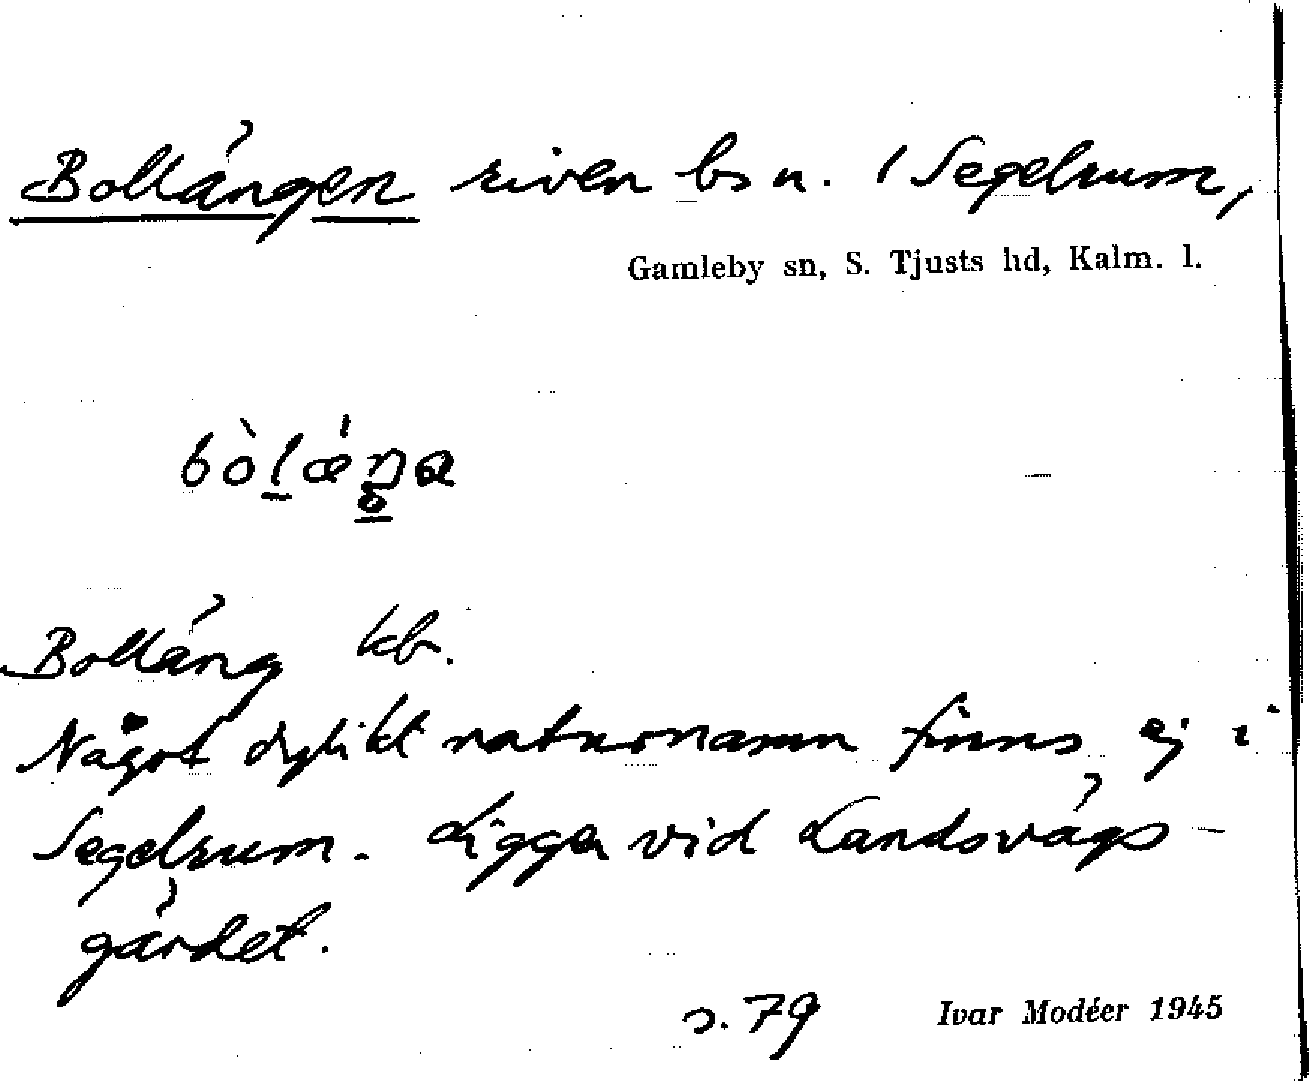 Bolländgen riven bs n. / Segelrum,
Gamleby sn, S. Tjusts hd, Kalm. l.
Bolläng kb.
Något dylikt naturnamn finns ej i
Segelrum. Ligger vid Landsvägs-
gärdet.
s. 79 Ivar Modéer 1945